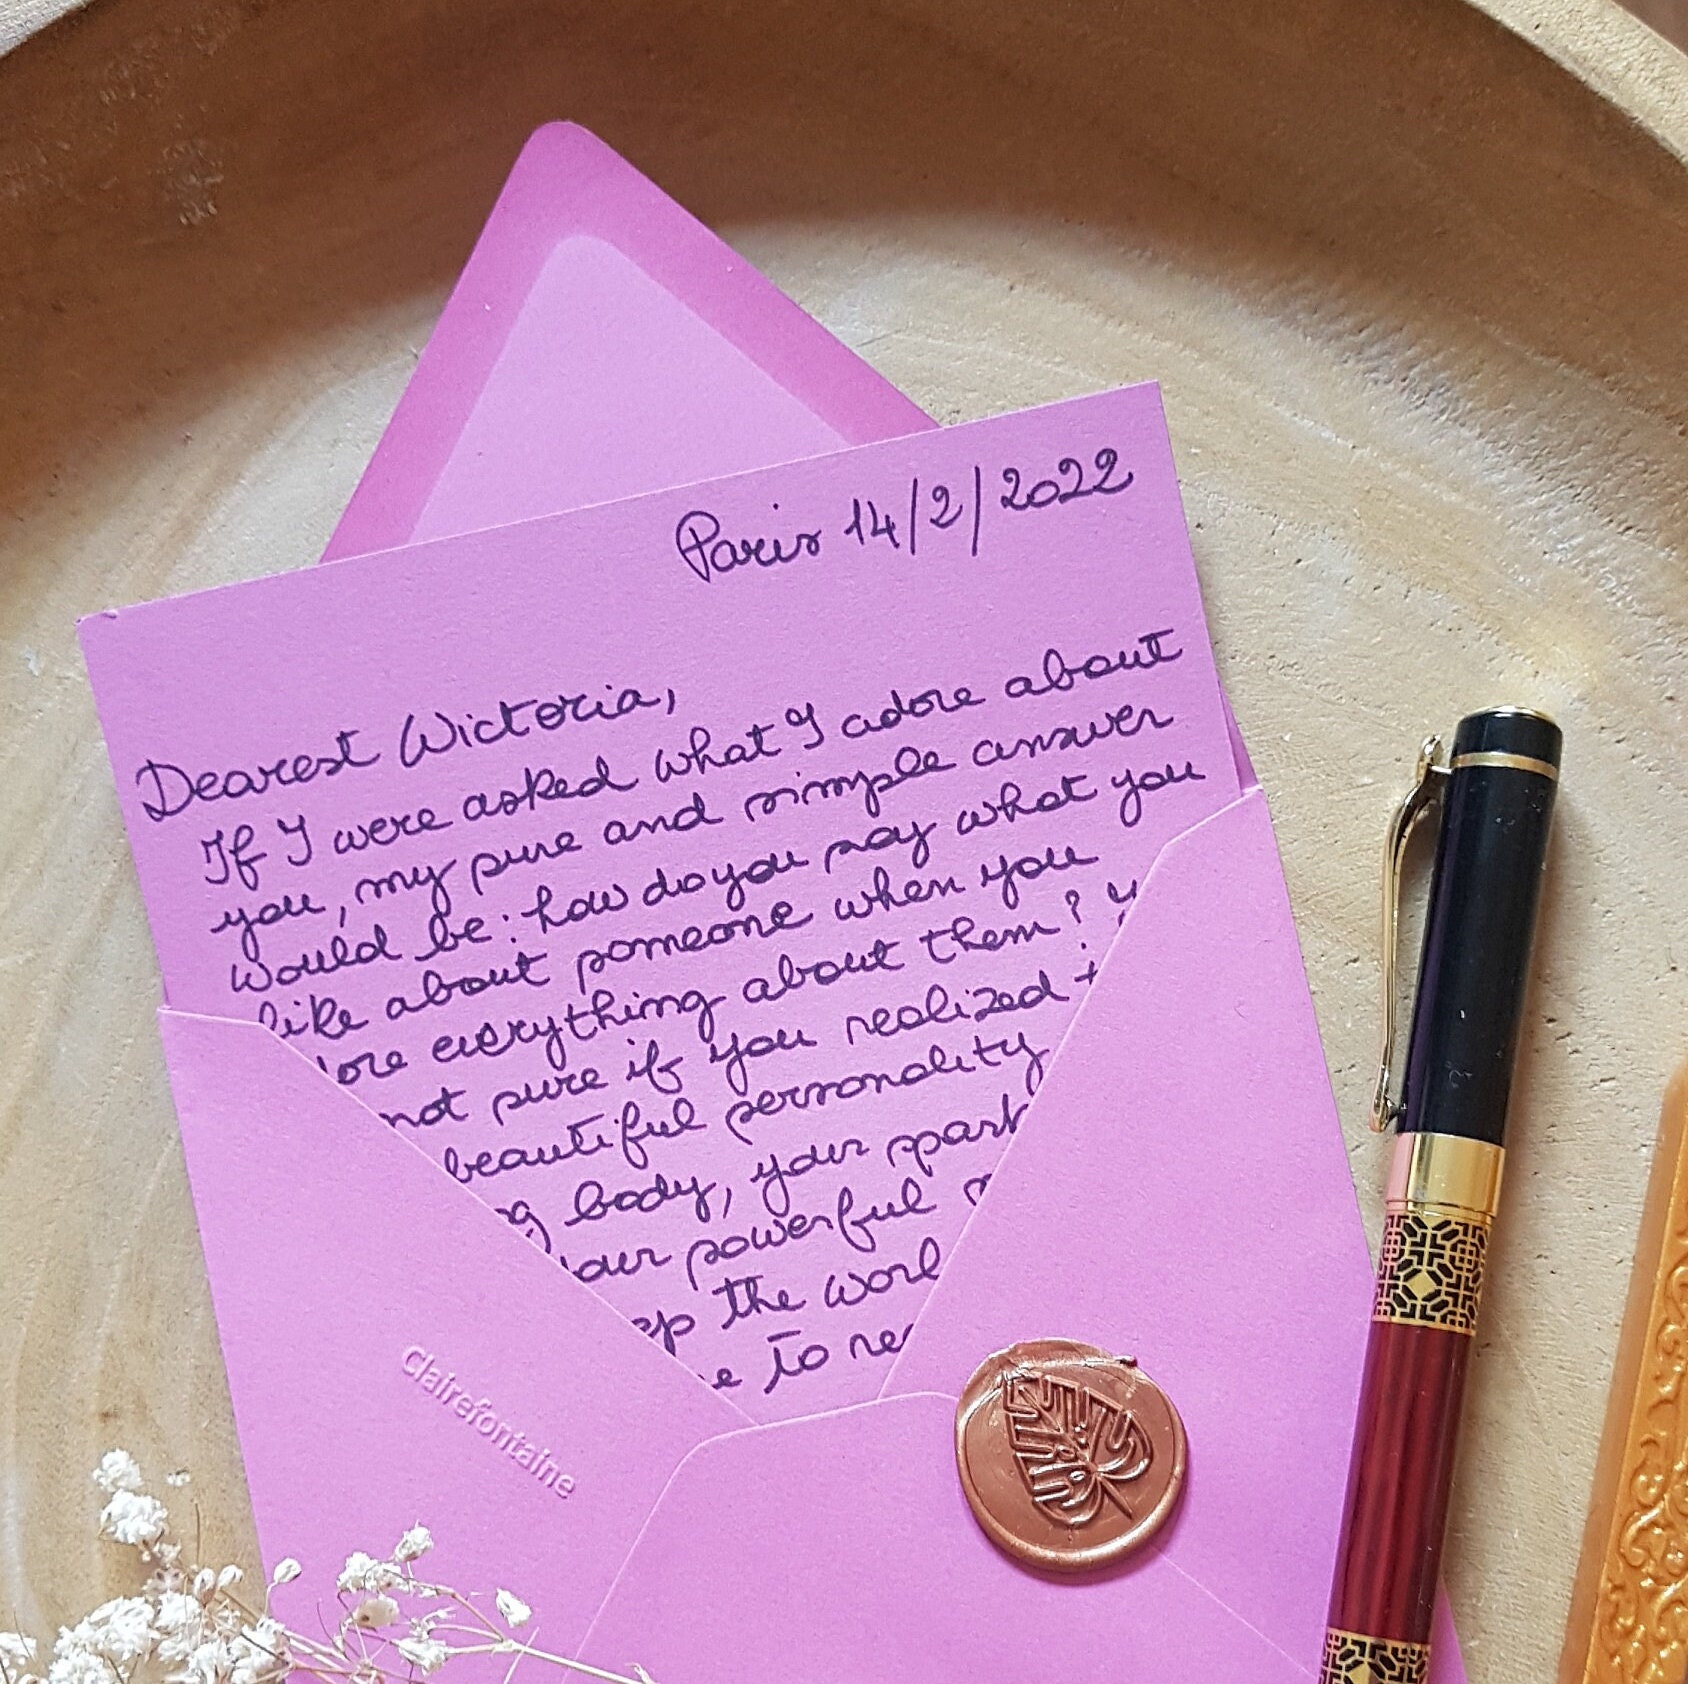 Paris 14/2/2022
Dearest Wictoria,
If I were asked what I adore about
you, my pure and simple answer
would be: how do you say what you
like about someone when you
everything about them?
not sure if you realized
beautiful personality
body, your spark
your powerful
the world
to
Clairefontaine